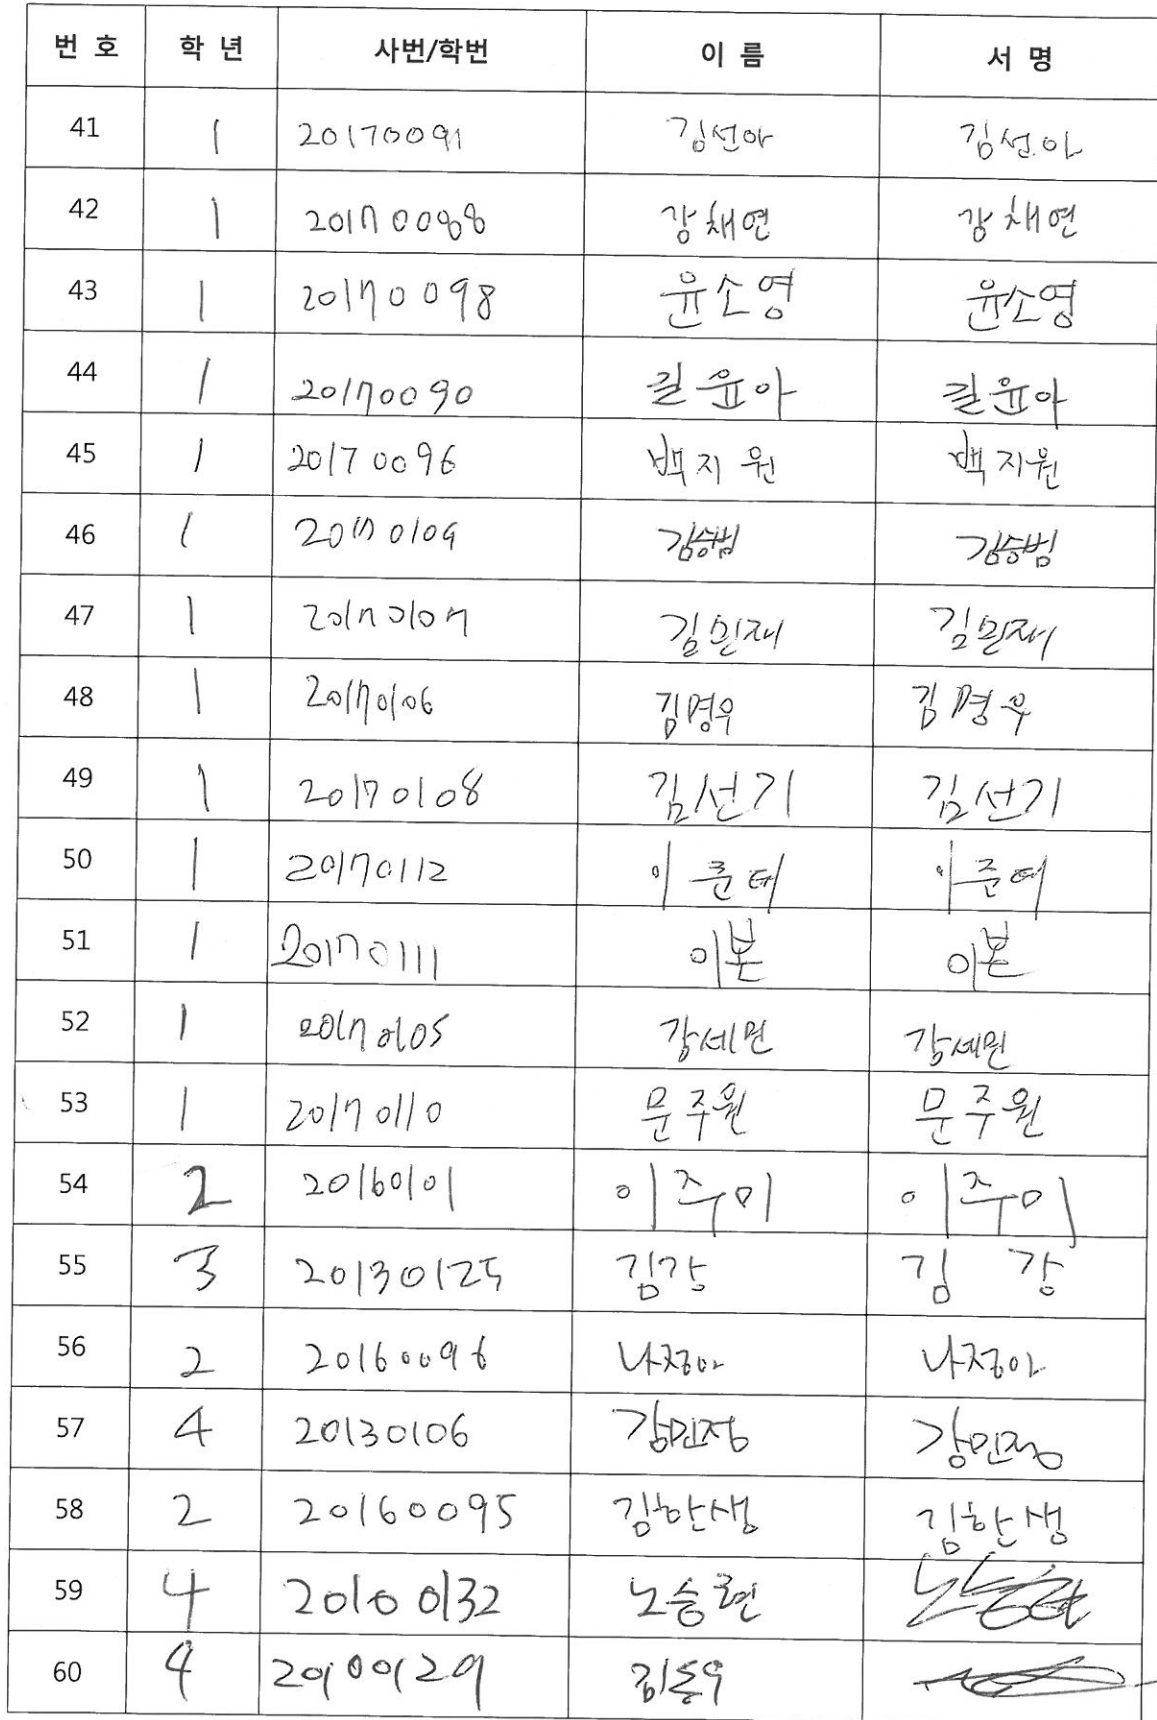 번 호 학 년 사번/학번 이 름 서 명
41 1 20170091 김선아 김선아
42 1 20170088 강채연 강채연
43 1 20170098 윤소영 윤소영
44 1 20170090 길윤아 길윤아
45 1 20170096 백지원 백지원
46 1 20170109 김승범 김승범
47 1 20170107 김민재 김민재
48 1 20170106 김명우 김명우
49 1 20170108 김선기 김선기
50 1 20170112 이준태 이준태
51 1 20170111 이본 이본
52 1 20170105 강세민 강세민
53 1 20170110 문주원 문주원
54 2 20160101 이주미 이주미
55 3 20130125 김강 김 강
56 2 20160096 나정아 나정아
57 4 20130106 강민정 강민정
58 2 20160095 김한생 김한생
59 4 20100132 노승현
60 4 20100129